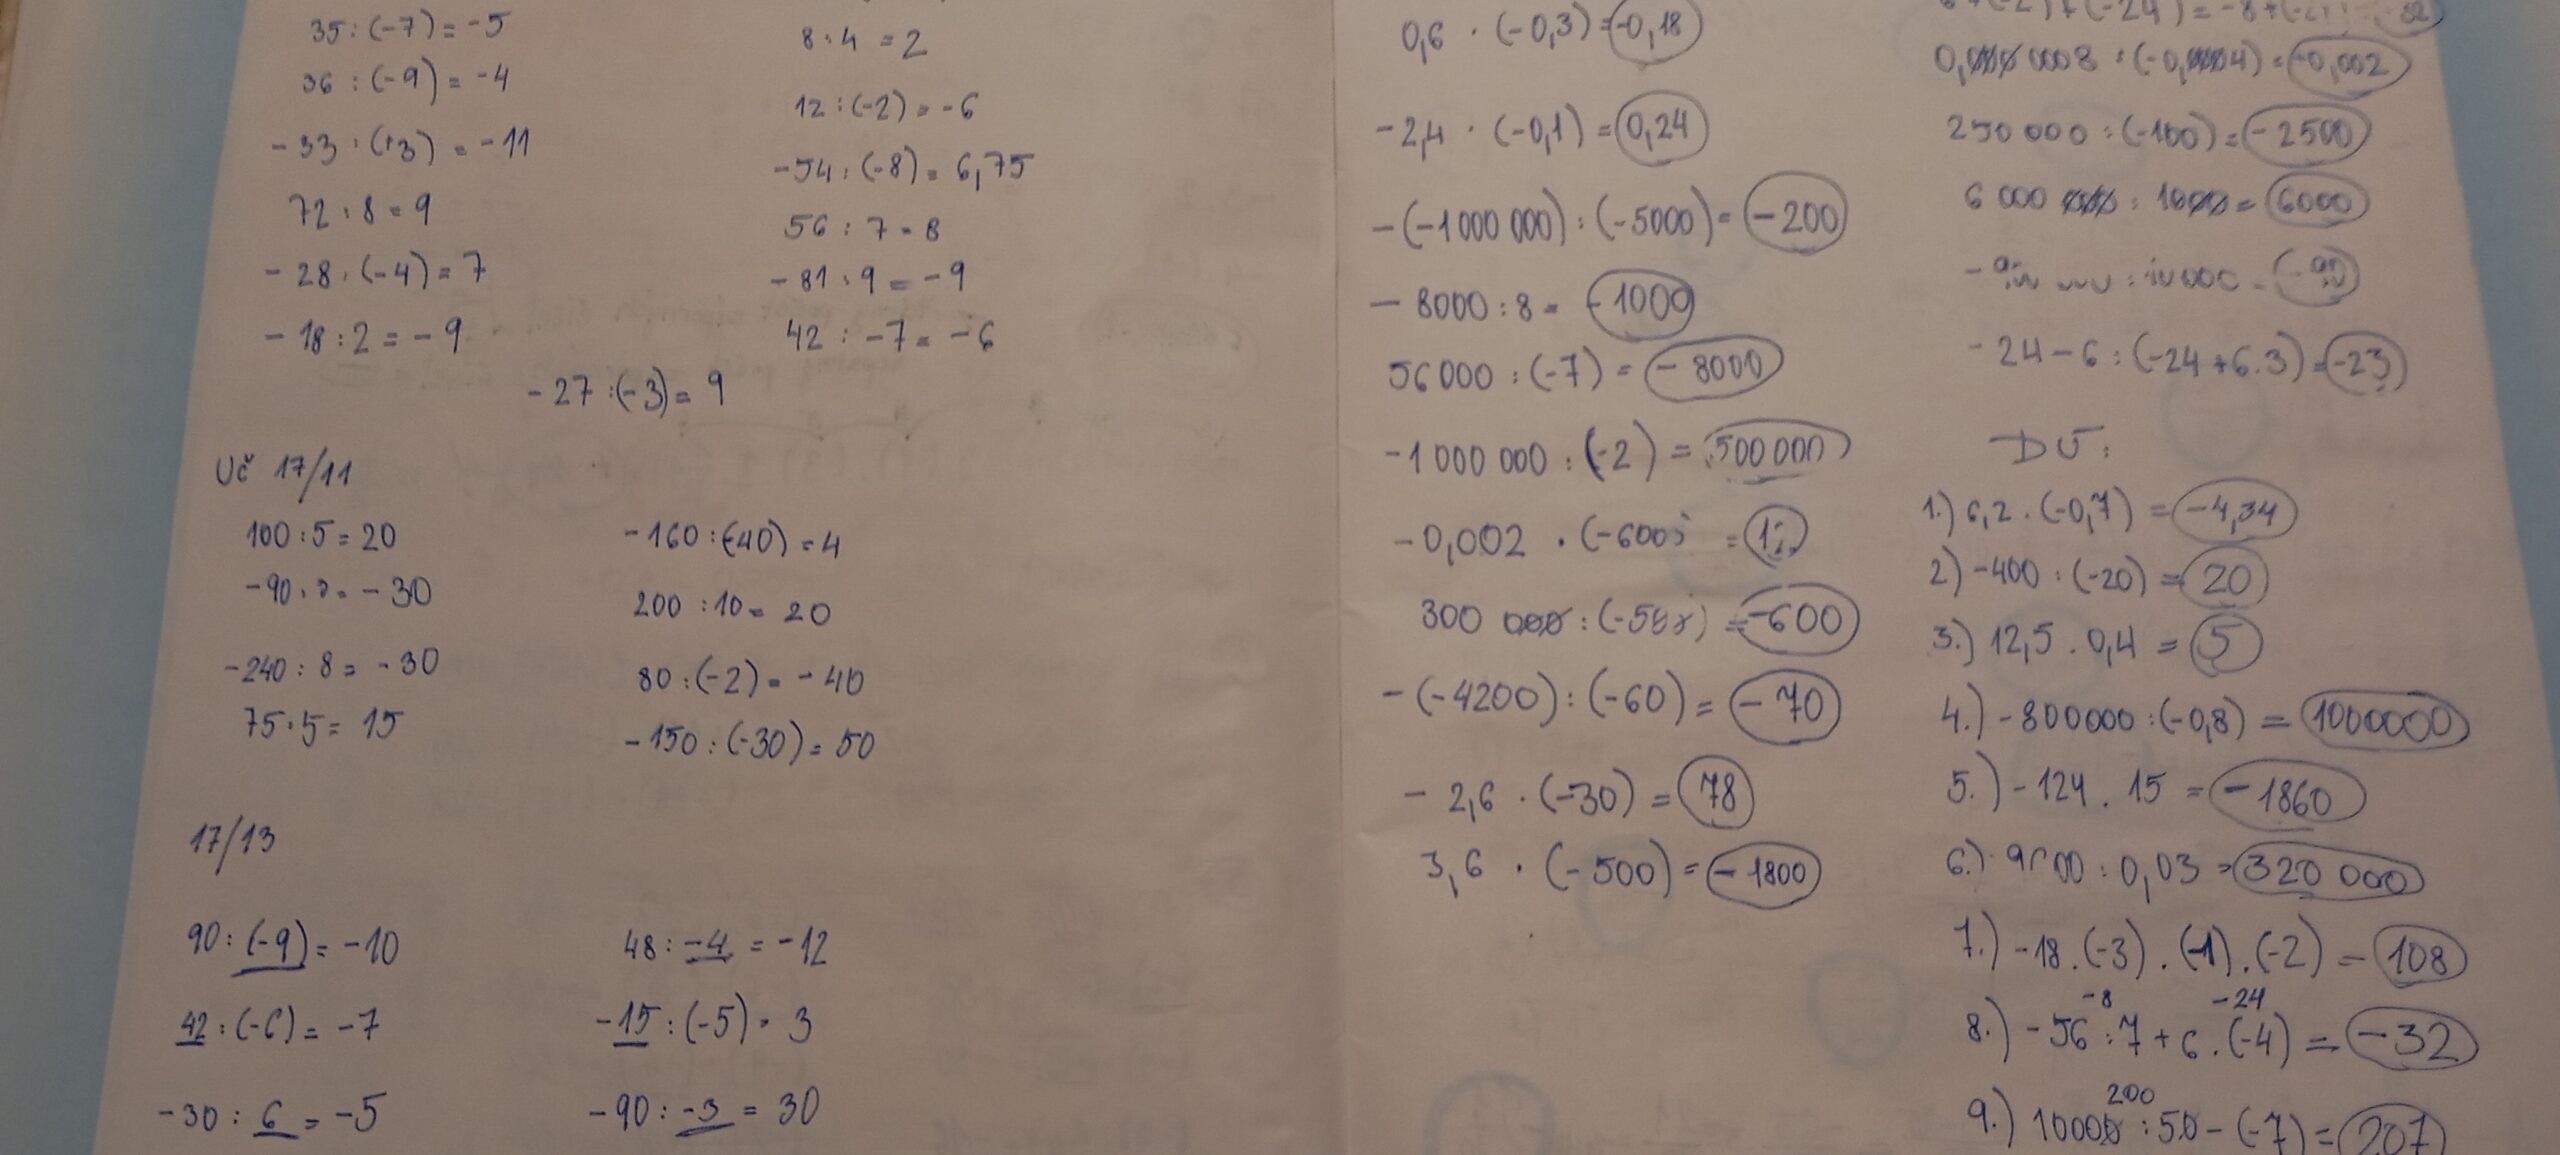 35 : (-7) = -5
36 : (-9) = -4
-33 : (+3) = -11
72 : 8 = 9
-28 : (-4) = 7
-18 : 2 = -9
8 : 4 = 2
12 : (-2) = -6
-54 : (-8) = 6,75
56 : 7 = 8
-81 : 9 = -9
42 : -7 = -6
-27 : (-3) = 9
Uč 17/11
100 : 5 = 20
-90 : 3 = -30
-240 : 8 = -30
75 : 5 = 15
-160 : (-40) = 4
200 : 10 = 20
80 : (-2) = -40
-150 : (-30) = 50
17/13
90 : (-9) = -10
42 : (-6) = -7
-30 : 6 = -5
48 : -4 = -12
-15 : (-5) = 3
-90 : -3 = 30
0,6 . (-0,3) = -0,18
-2,4 . (-0,1) = 0,24
-(-1 000 000) : (-5000) = -200
-8000 : 8 = -1000
56 000 : (-7) = -8000
-1 000 000 : (-2) = 500 000
-0,002 . (-600)
300 000 : (-500) = -600
-(-4200) : (-60) = -70
-2,6 . (-30) = 78
3,6 . (-500) = -1800
250 000 : (-100) = -2500
6 000 000 : 1000 = 6000
-24 - 6 : (-24 + 6.3) = -23
DÚ:
1.) 6,2 . (-0,7) = -4,34
2) -400 : (-20) = 20
3.) 12,5 . 0,4 = 5
4.) -800000 : (-0,8) = 1000000
5.) -124 . 15 = -1860
6.) : 0,03 = 320 000
7.) -18 . (-3) . (-1) . (-2) = 108
-8 -24
8.) -56 : 7 + 6 . (-4) = -32
200
9.) 10000 : 50 - (-7) = 207